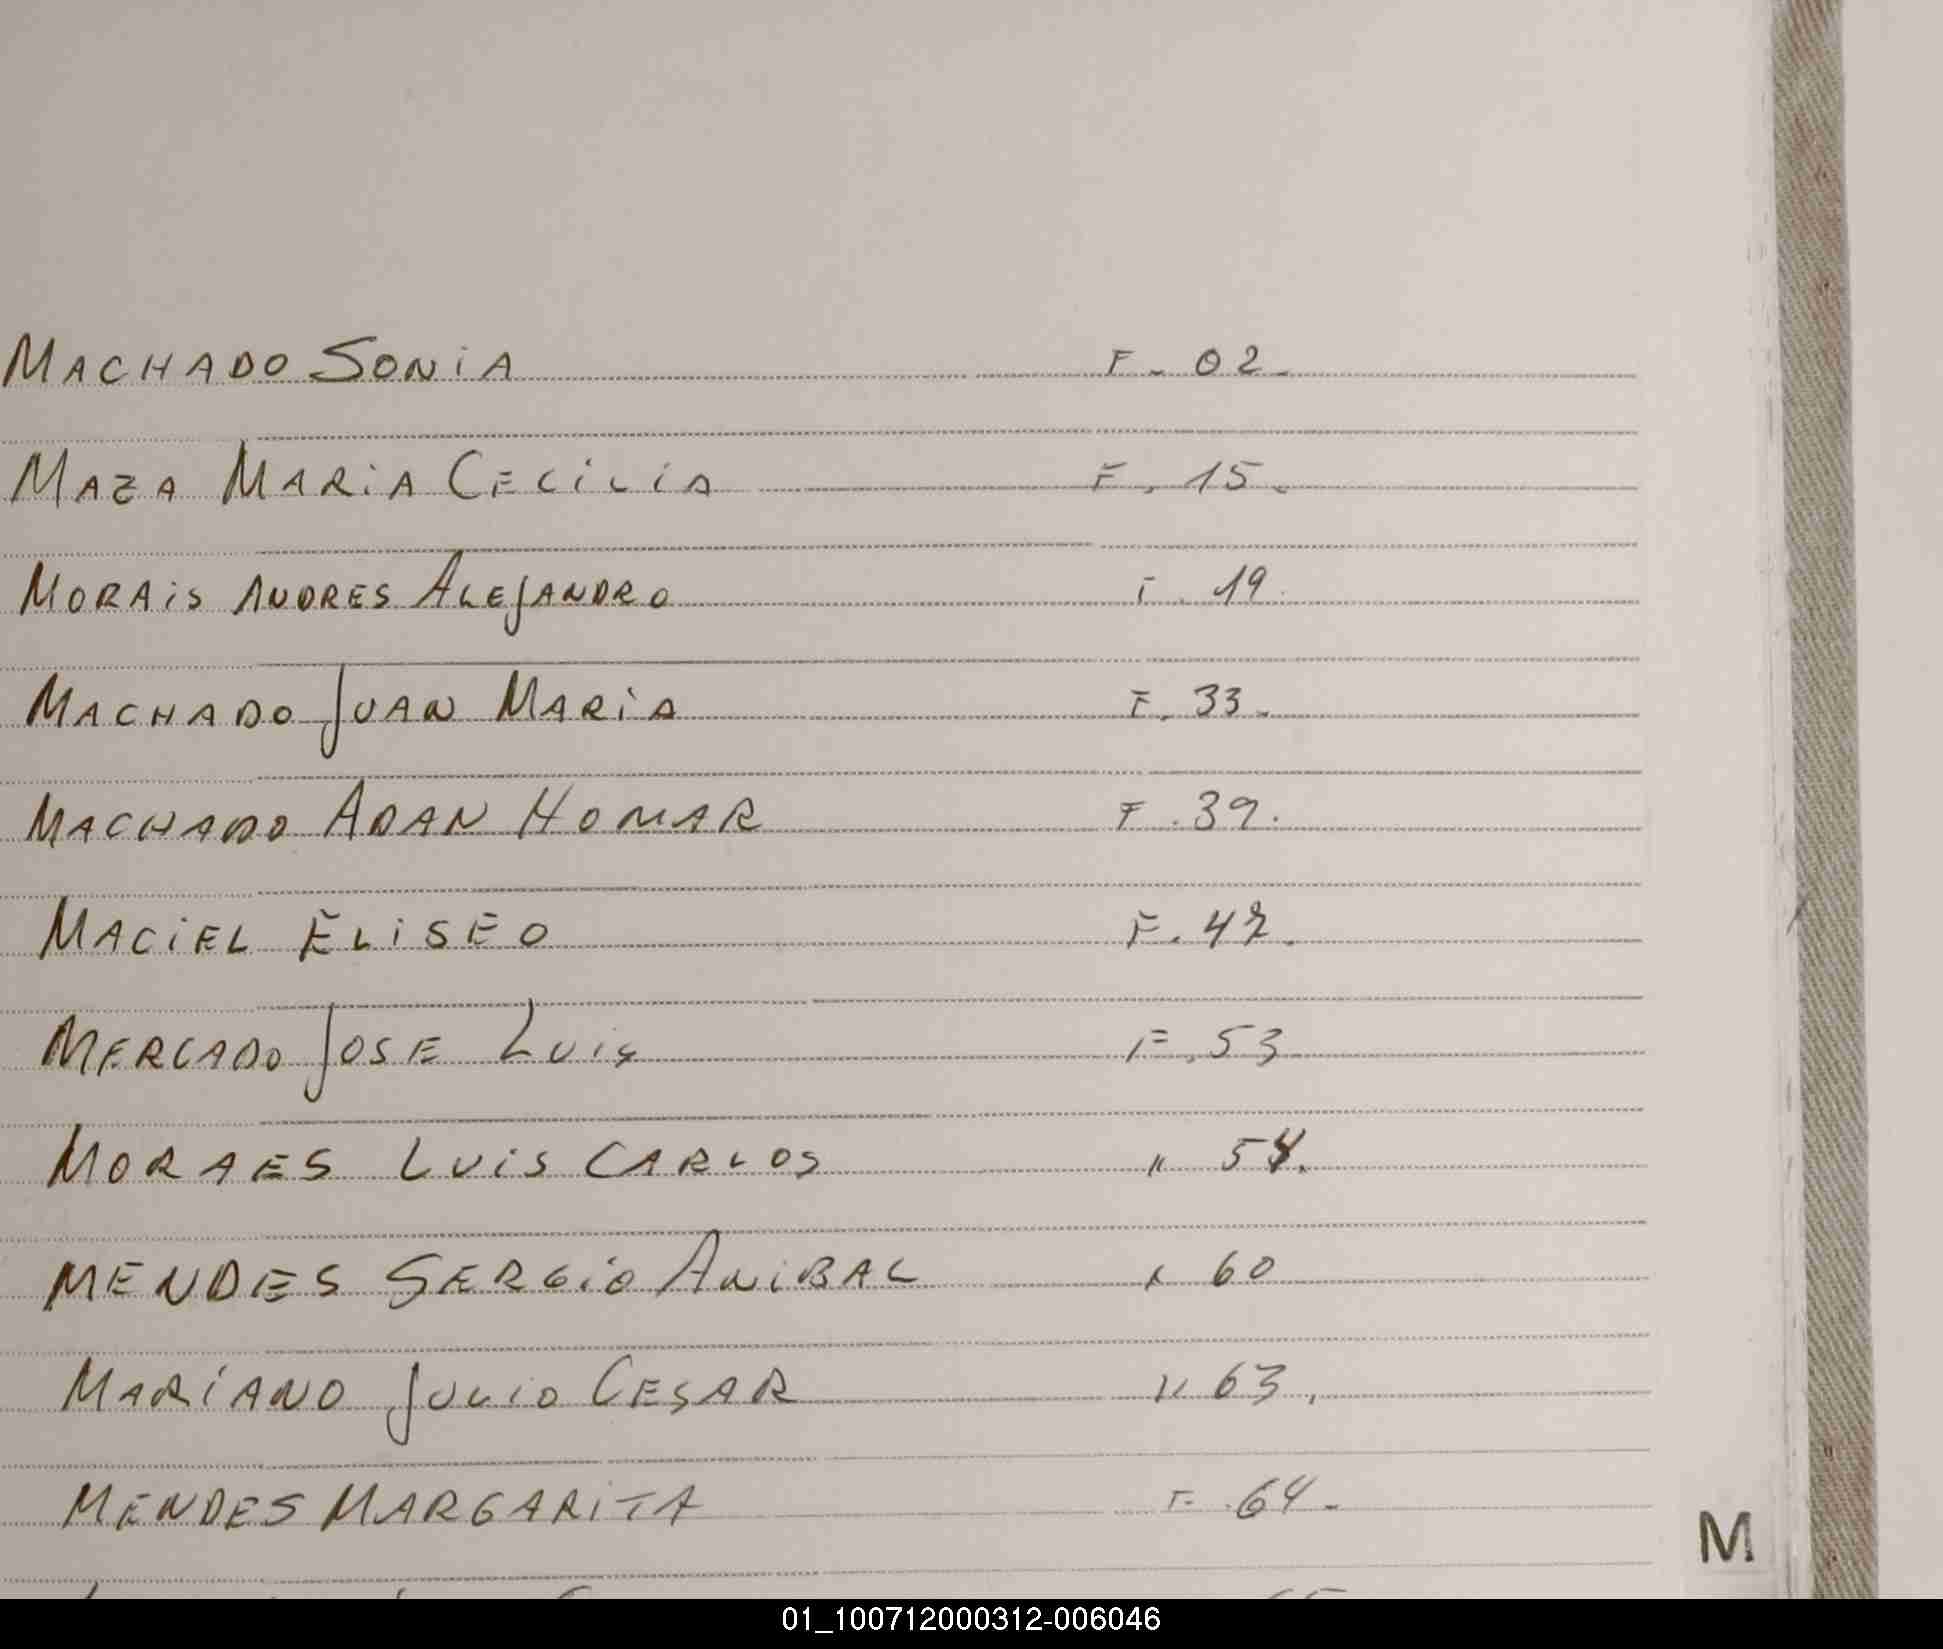 MACHADO SONIA F. 02.
MAZA MARIA CECILIA F. 15.
MORAIS ANDRES ALEJANDRO F. 19.
MACHADO JUAN MARIA F. 33.
MACHADO ADAN HOMAR F. 39.
MACIEL ELISEO F.
MERCADO JOSE LUIS F. 53
MORAES LUIS CARLOS " 54.
MENDES SERGIO ANIBAL " 60
MARIANO JULIO CESAR " 63.
MENDES MARGARITA F. 64.
M
01_100712000312-006046